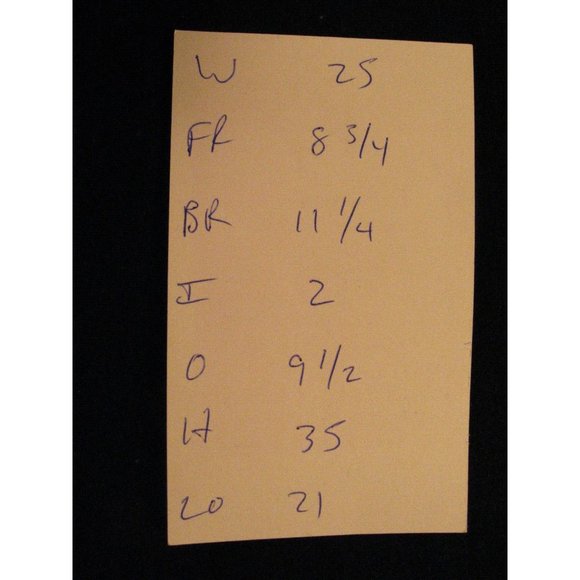 W 25
FR 8 3/4
BR 11 1/4
I 2
O 9 1/2
H 35
LO 21